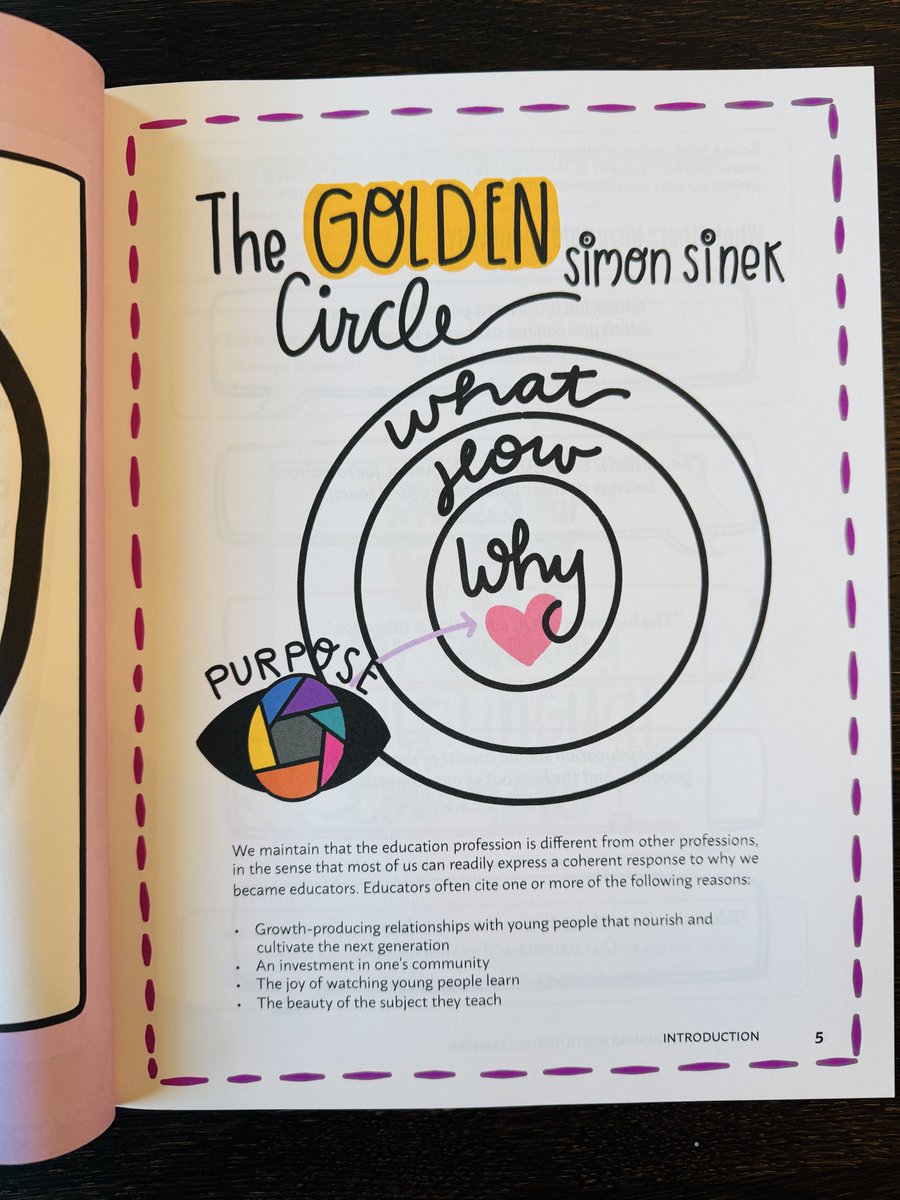 The GOLDEN
Circle
simon sinek
what
how
why
PURPOSE
We maintain that the education profession is different from other professions,
in the sense that most of us can readily express a coherent response to why we
became educators. Educators often cite one or more of the following reasons:
• Growth-producing relationships with young people that nourish and
cultivate the next generation
• An investment in one's community
• The joy of watching young people learn
• The beauty of the subject they teach
INTRODUCTION 5